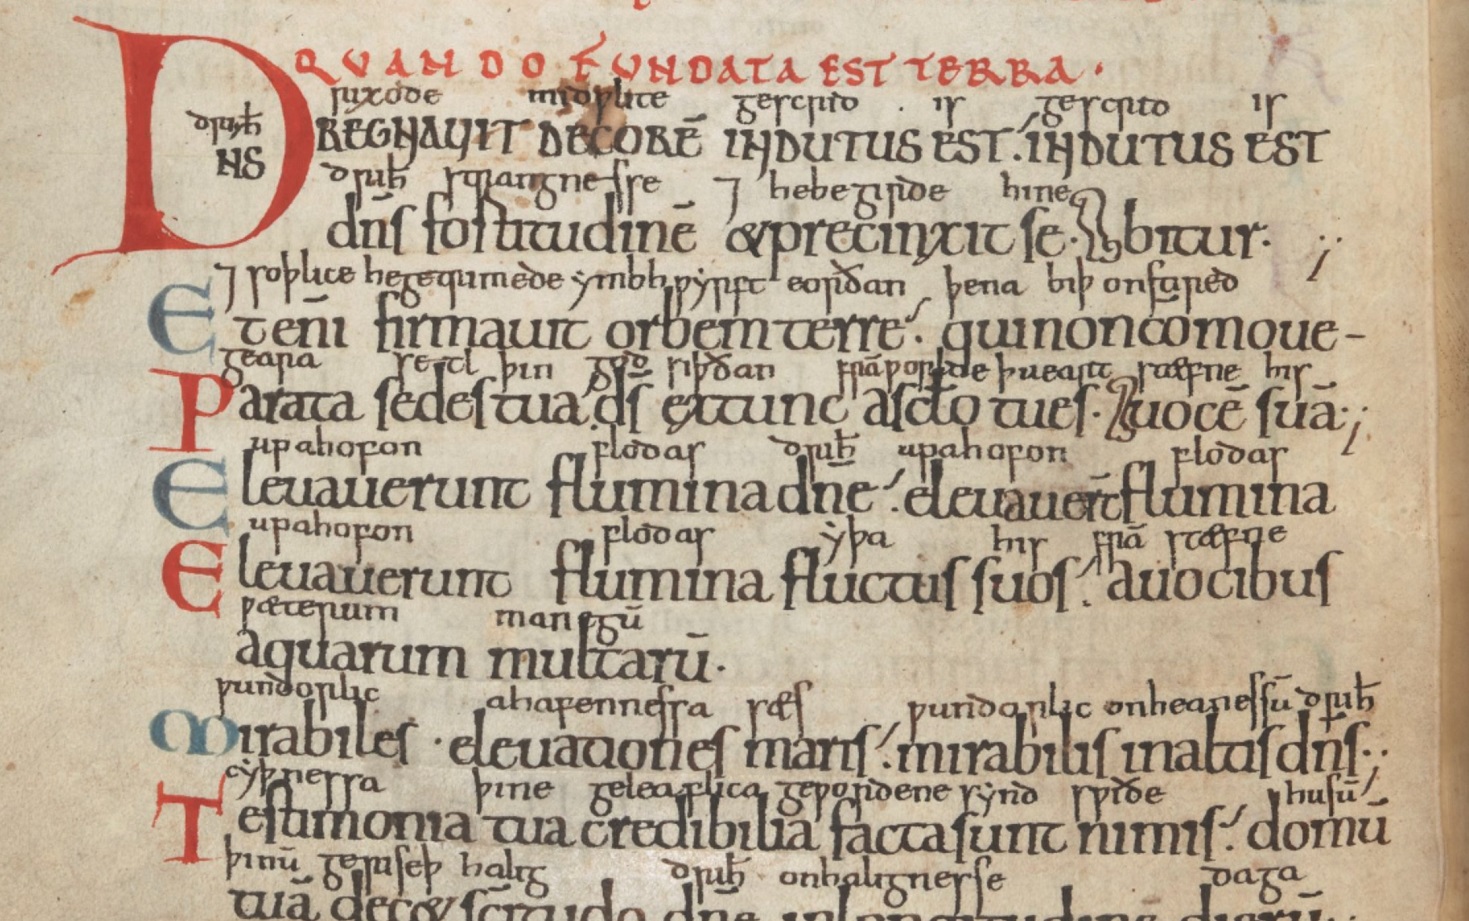 QUANDO FUNDATA EST TERRA.
rixode midwlite gescrid . is gescrito is
DNS REGNAUIT DECORĒ INDUTUS EST. INDUTUS EST
drih̄ strangnesse ⁊ hebegirde hine
dn̄s fortitudinē & precinxit se. bitur.
⁊ soþlice he getrimede ymbhwyrft eorðan þena biþ onstired
Eteni firmauit orbem terre. qui non comoue-
geara setl þin god siþðan frā worlde þu eart stæfne his
Parata sedes tua ds̄ extunc asclo tu es. uocē suā;
upahofon flodas drih̄ upahofon flodas
Eleuauerunt flumina dn̄e. eleuauer̄t flumina
upahofon flodas yþa his frā stæfne
Eleuauerunt flumina fluctus suos. auocibus
wæterum manegū
aquarum multarū.
wundorlic ahafennessa sæs wundorlic onheanessū drih̄
Mirabiles elevationes maris. mirabilis inaltis dn̄s.
cyþnessa þine geleaflica gewordene synd swiðe husū
Testimonia tua credibilia facta sunt nimis. domū
þinū geriseþ halig drih̄ onhalignesse daga
tuā dec& sc̄itudo dn̄e inlongitudinē dierū.